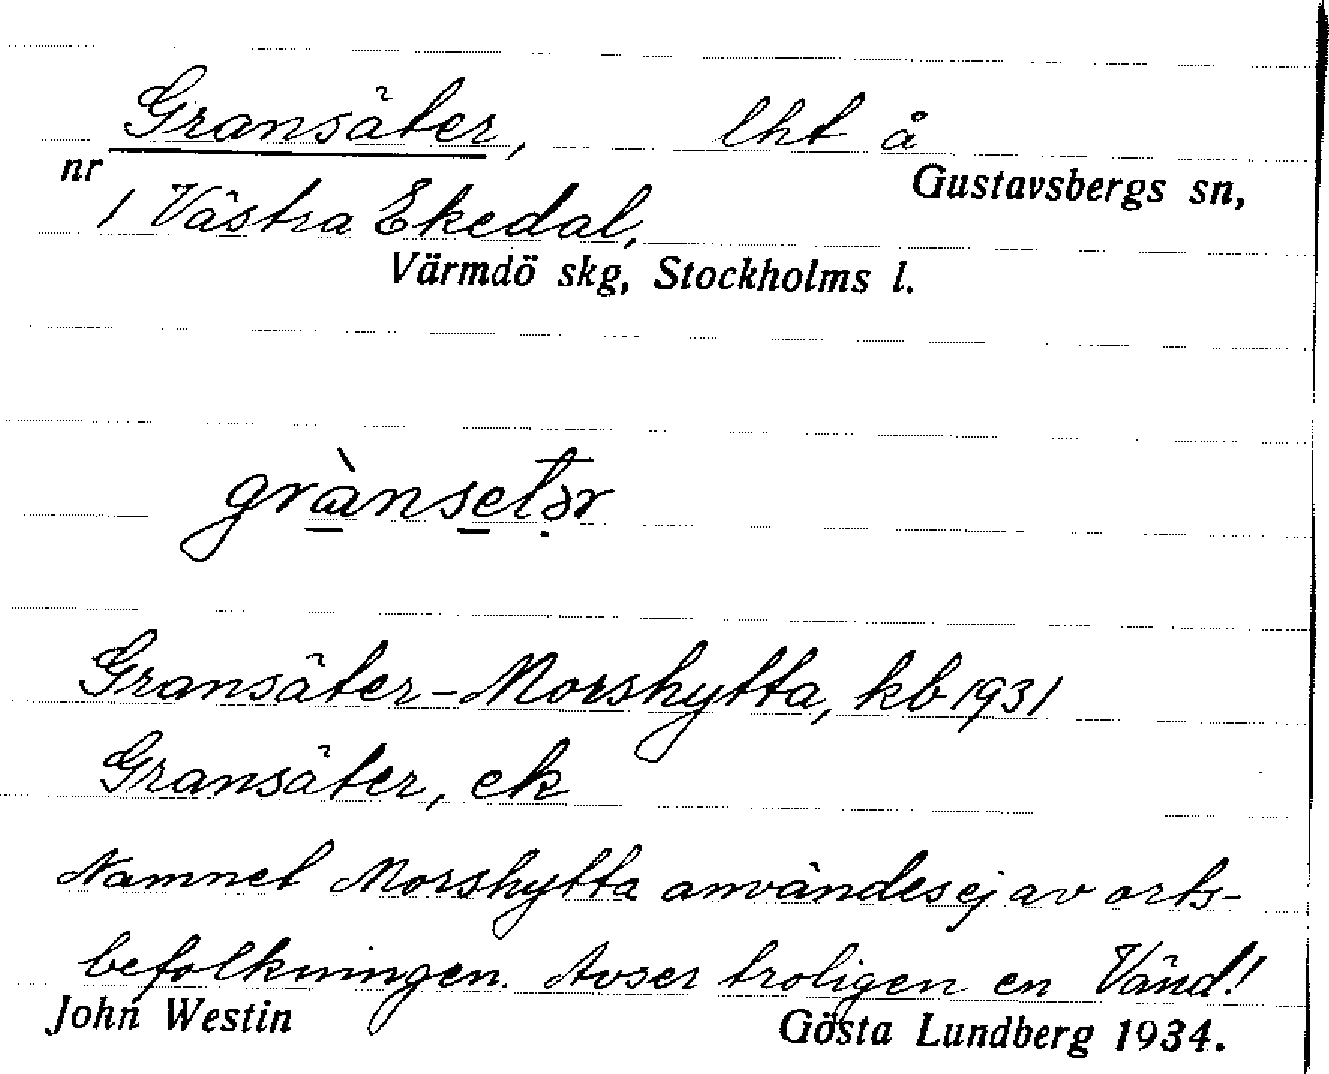 Gransäter, lht å
nr 1 Västra Ekedal, Gustavsbergs sn,
Värmdö skg, Stockholms l.
grànsetər
Gransäter-Morshytta, kb 1931
Gransäter, ek
Namnet Morshytta användes ej av orts-
befolkningen. Avser troligen en Vänd!
John Westin Gösta Lundberg 1934.